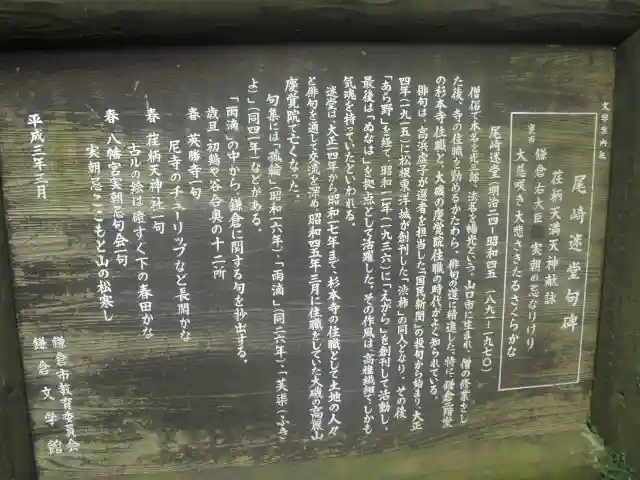 文学案内板
尾崎迷堂句碑
荏柄天満天神献詠
鎌倉右大臣
実朝の忌なりけり
大慈咲き大悲さきたるさくらかな
尾崎迷堂(明治二四―昭和四五 一八九一―一九七〇)
僧俗で本名を光三郎、法名を暢光という。山口市に生まれ、僧の修業をし
た後、寺の住職を勤めるかたわら、俳句の道に精進した。特に、鎌倉二階堂
の杉本寺住職と、大磯の慶覚院住職の時代がよく知られている。
俳句は、高浜虚子が選者を担当した「国民新聞」の投句から始まり、大正
四年(一九一五)に松根東洋城が創刊した「渋柿」の同人となり、その後
「あら野」を経て、昭和一一年(一九三六)に「えがら」を創刊して活動し、
最後は「ぬなは」を拠点として活躍した。その作風は、高雅繊細でしかも
気魂を持っていたといわれる。
迷堂は、大正一四年から昭和一七年まで、杉本寺の住職として土地の人々
と俳句を通して交流を深め、昭和四五年三月に住職をしていた大磯の高麗山
慶覚院で亡くなった。
句集には、「孤輪」(昭和一六年)・「雨滴」(同二六年)・「芙蕖(ふき
よ)」(同四一年)などがある。
「雨滴」の中から、鎌倉に関する句を抄出する。
歳旦 初鶏や谷合奥の十二所
春 英勝寺一句
尼寺のチューリップなど長閑かな
春 荏柄天神社一句
古ルの絵は碓すく下の春田かな
春 八幡宮実朝忌句会一句
実朝忌ここもと山の松寒し
平成三年二月
鎌倉市教育委員会
鎌倉文学館